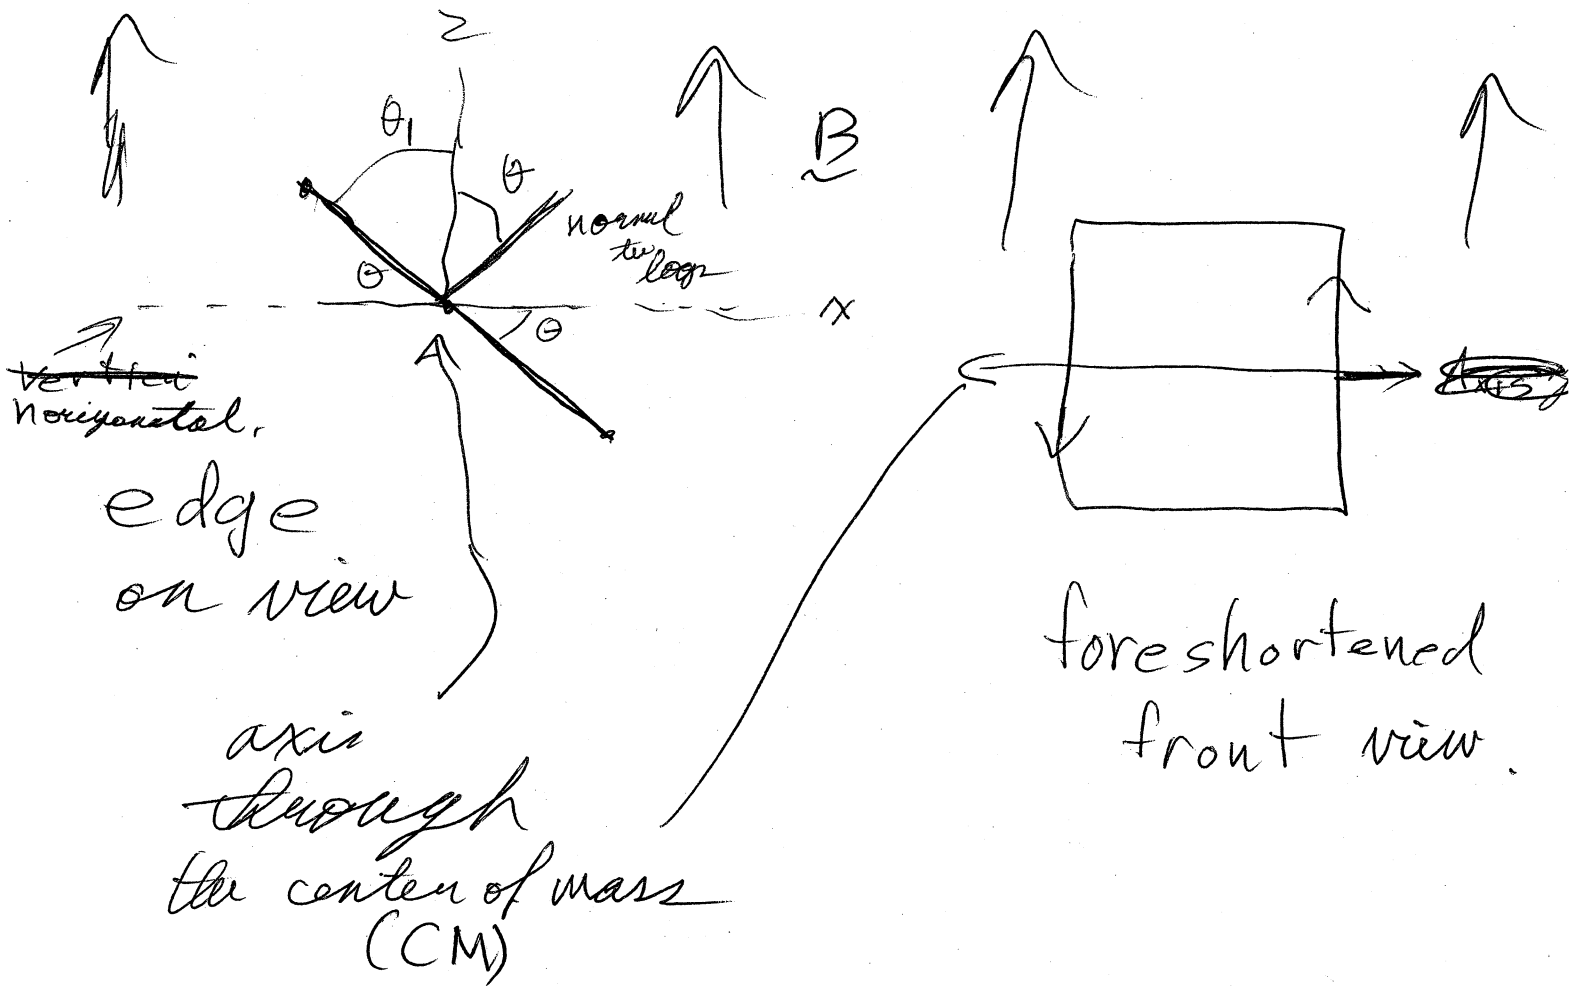 z
θ₁
θ
B
normal
to
loop
θ
x
θ
vertical
horizontal.
edge
on view
axis
through
the center of mass
(CM)
Axis
foreshortened
front view.